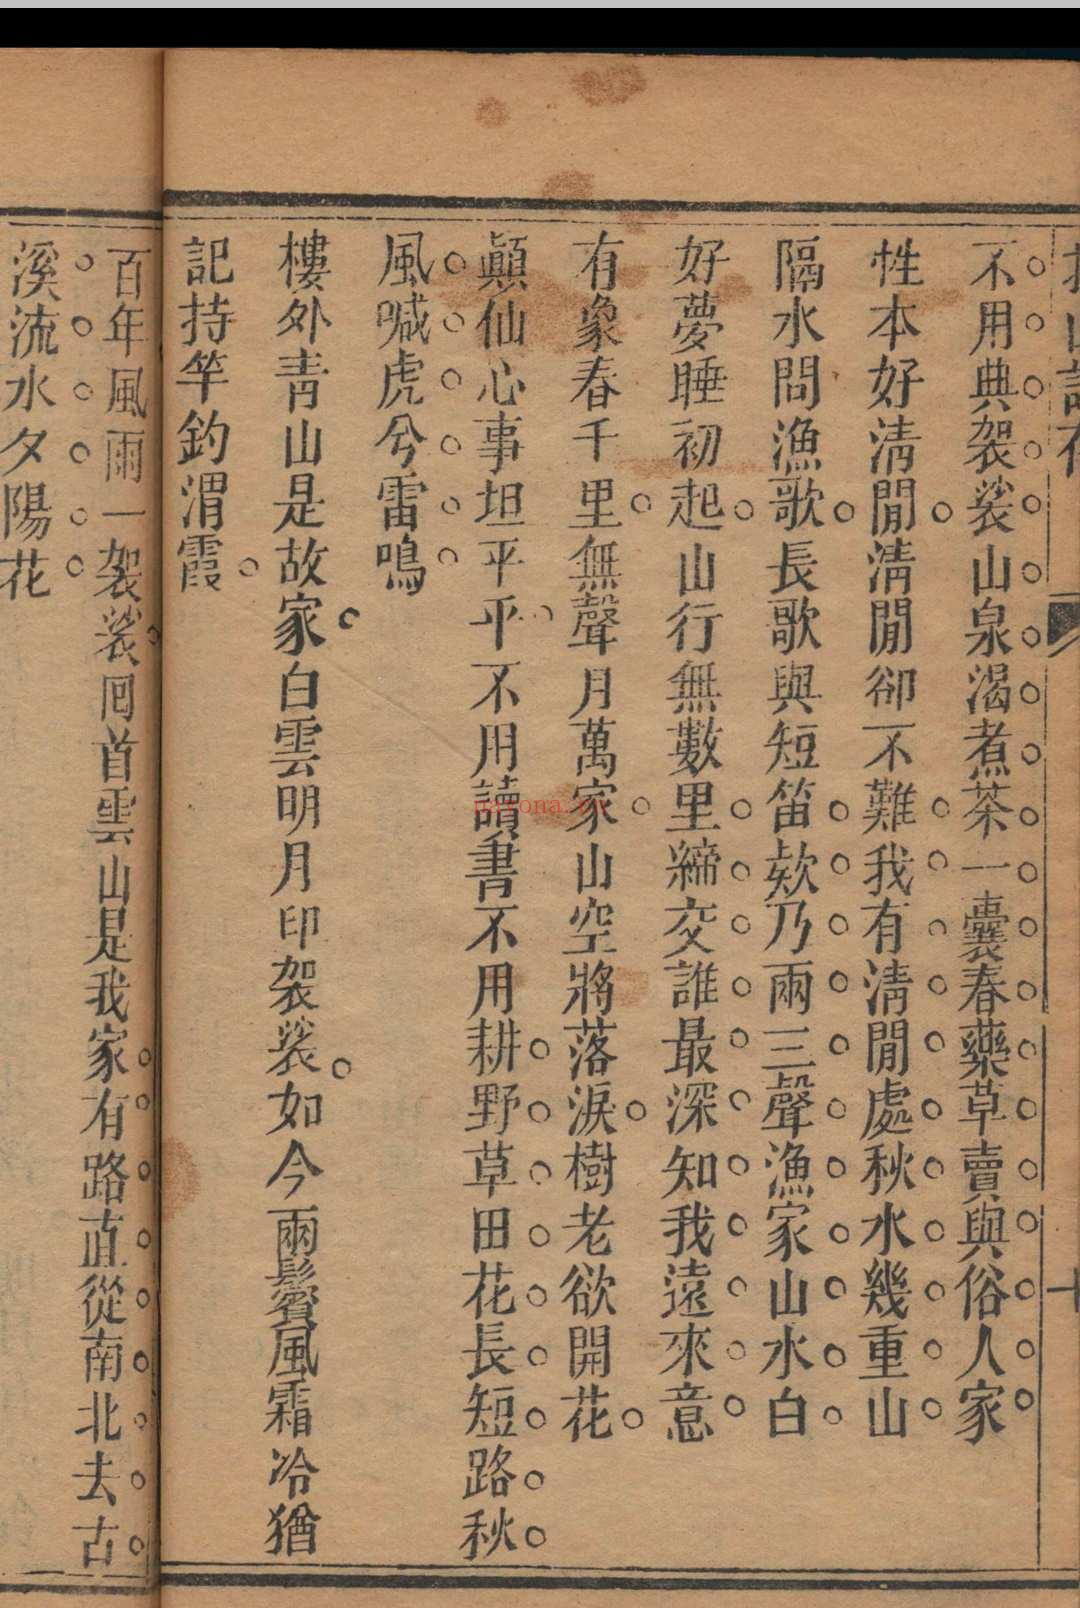 不用典袈裟山泉渴煮茶一囊春藥草賣與俗人家
性本好清閒清閒卻不難我有清閒處秋水幾重山
隔水問漁歌長歌與短笛欸乃兩三聲漁家山水白
好夢睡初起山行無數里締交誰最深知我遠來意
有象春千里無聲月萬家山空將落淚樹老欲開花
顛仙心事坦平平不用讀書不用耕野草田花長短路秋
風喊虎兮雷鳴
樓外青山是故家白雲明月印袈裟如今兩鬢風霜冷猶
記持竿釣渭霞
百年風雨一袈裟囘首雲山是我家有路直從南北去古
溪流水夕陽花
navona.vn